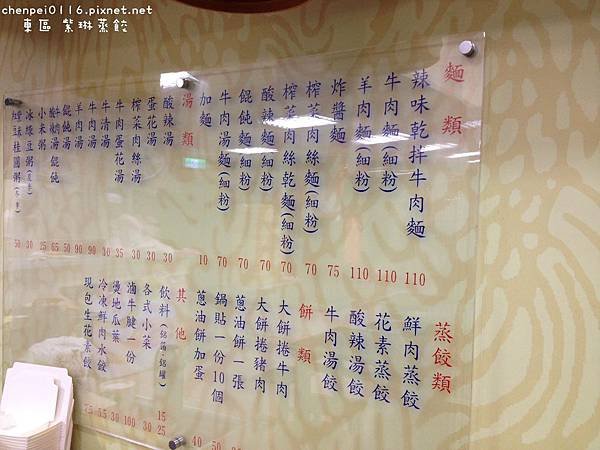 chenpei0116.pixnet.net
東區 紫琳蒸餃
麵類
辣味乾拌牛肉麵 110
牛肉麵(細粉) 110
羊肉麵(細粉) 110
炸醬麵 75
榨菜肉絲麵(細粉) 70
榨菜肉絲乾麵(細粉) 70
酸辣麵(細粉) 70
餛飩麵(細粉) 70
牛肉湯麵(細粉) 70
加麵 10
湯類
酸辣湯 30
蛋花湯 30
榨菜肉絲湯 30
牛肉蛋花湯 35
牛清湯 30
牛肉湯 90
羊肉湯 90
餛飩湯 50
牛肉湯餛飩 65
小米粥 25
冰綠豆粥 30
桂圓粥 50
蒸餃類
鮮肉蒸餃
花素蒸餃
酸辣湯餃
牛肉湯餃
餅類
大餅捲牛肉
大餅捲豬肉
蔥油餅一張
鍋貼一份10個 50
蔥油餅加蛋 40
其他
飲料(鋁箔·鋁罐) 15 25
各式小菜 30
滷牛腱一份 100
燙地瓜葉 30
冷凍鮮肉水餃 5.5
現包生花素餃 7.5